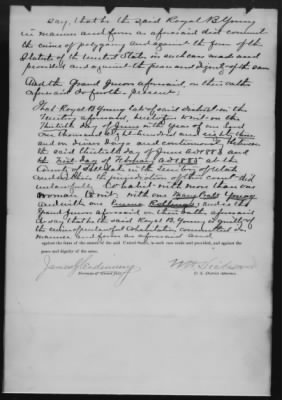 say, that he the said Royal B. Young
in manner and form as aforesaid did commit
the crime of polygamy and against the form of the
Statute of the United States in such case made and
provided and against the peace and dignity of the same
And the Grand Jurors aforesaid on their oath
aforesaid do further present;
That Royal B. Young late of said District in the
Territory aforesaid, to wit on the
Thirtieth day of June in the year of our Lord
one thousand eight hundred and eighty three
and on divers days and continuously between
the said thirtieth day of June A.D. 1883 and
the First day of February A.D. 1885 at the
County of Salt Lake in the Territory of Utah
and within the jurisdiction of this Court did
unlawfully Cohabit with more than one
woman to wit; with one Mary Pratt Young
and with one and so the
Grand Jurors aforesaid on their oath aforesaid
do say, that he the said Royal B. Young is guilty of
the crime of unlawful Cohabitation committed in
manner and form as aforesaid and
against the form of the statute of the said United States, in such case made and provided, and against the
peace and dignity of the same.
James
Foreman of Grand Jury.
U. S. District Attorney.